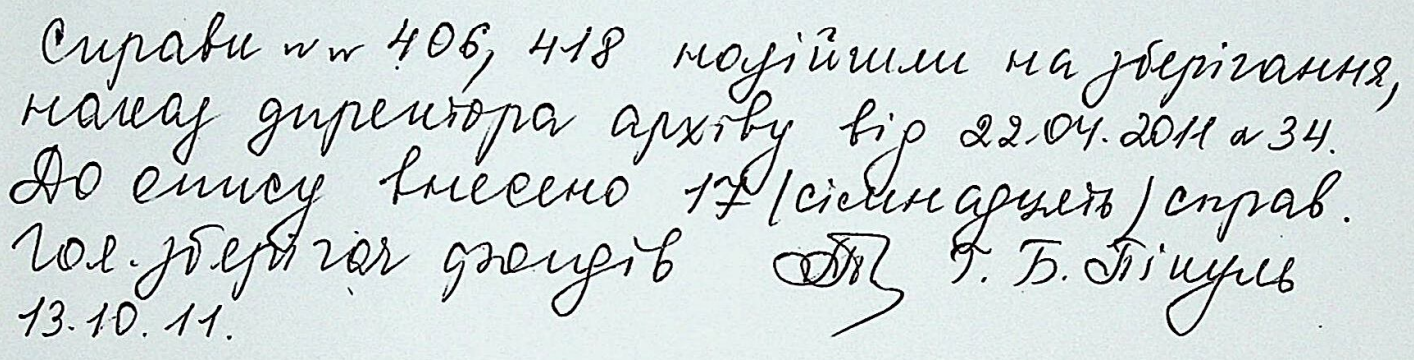 Справи №№ 406, 418 надійшли на зберігання,
наказ директора архіву від 22.04.2011 № 34.
До опису внесено 17 (сімнадцять) справ.
Гол. зберігач фондів Г. Б. Пікуль
13.10.11.